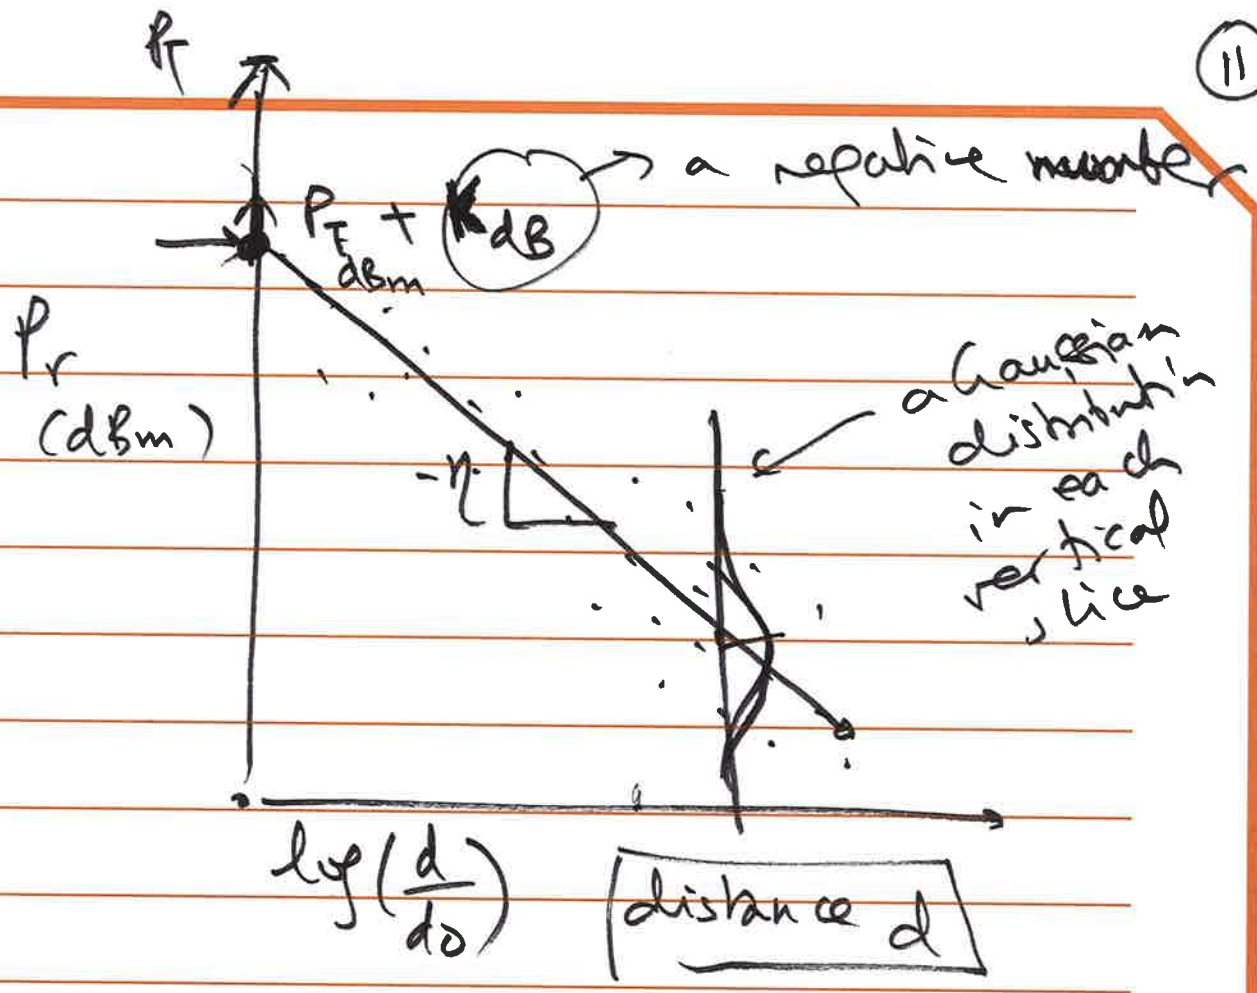 11
P_T
P_T + K_dB → a negative number
dBm
P_r
(dBm)
a Gaussian
distribution
in each
vertical
slice
-η
log(d/d0)
distance d